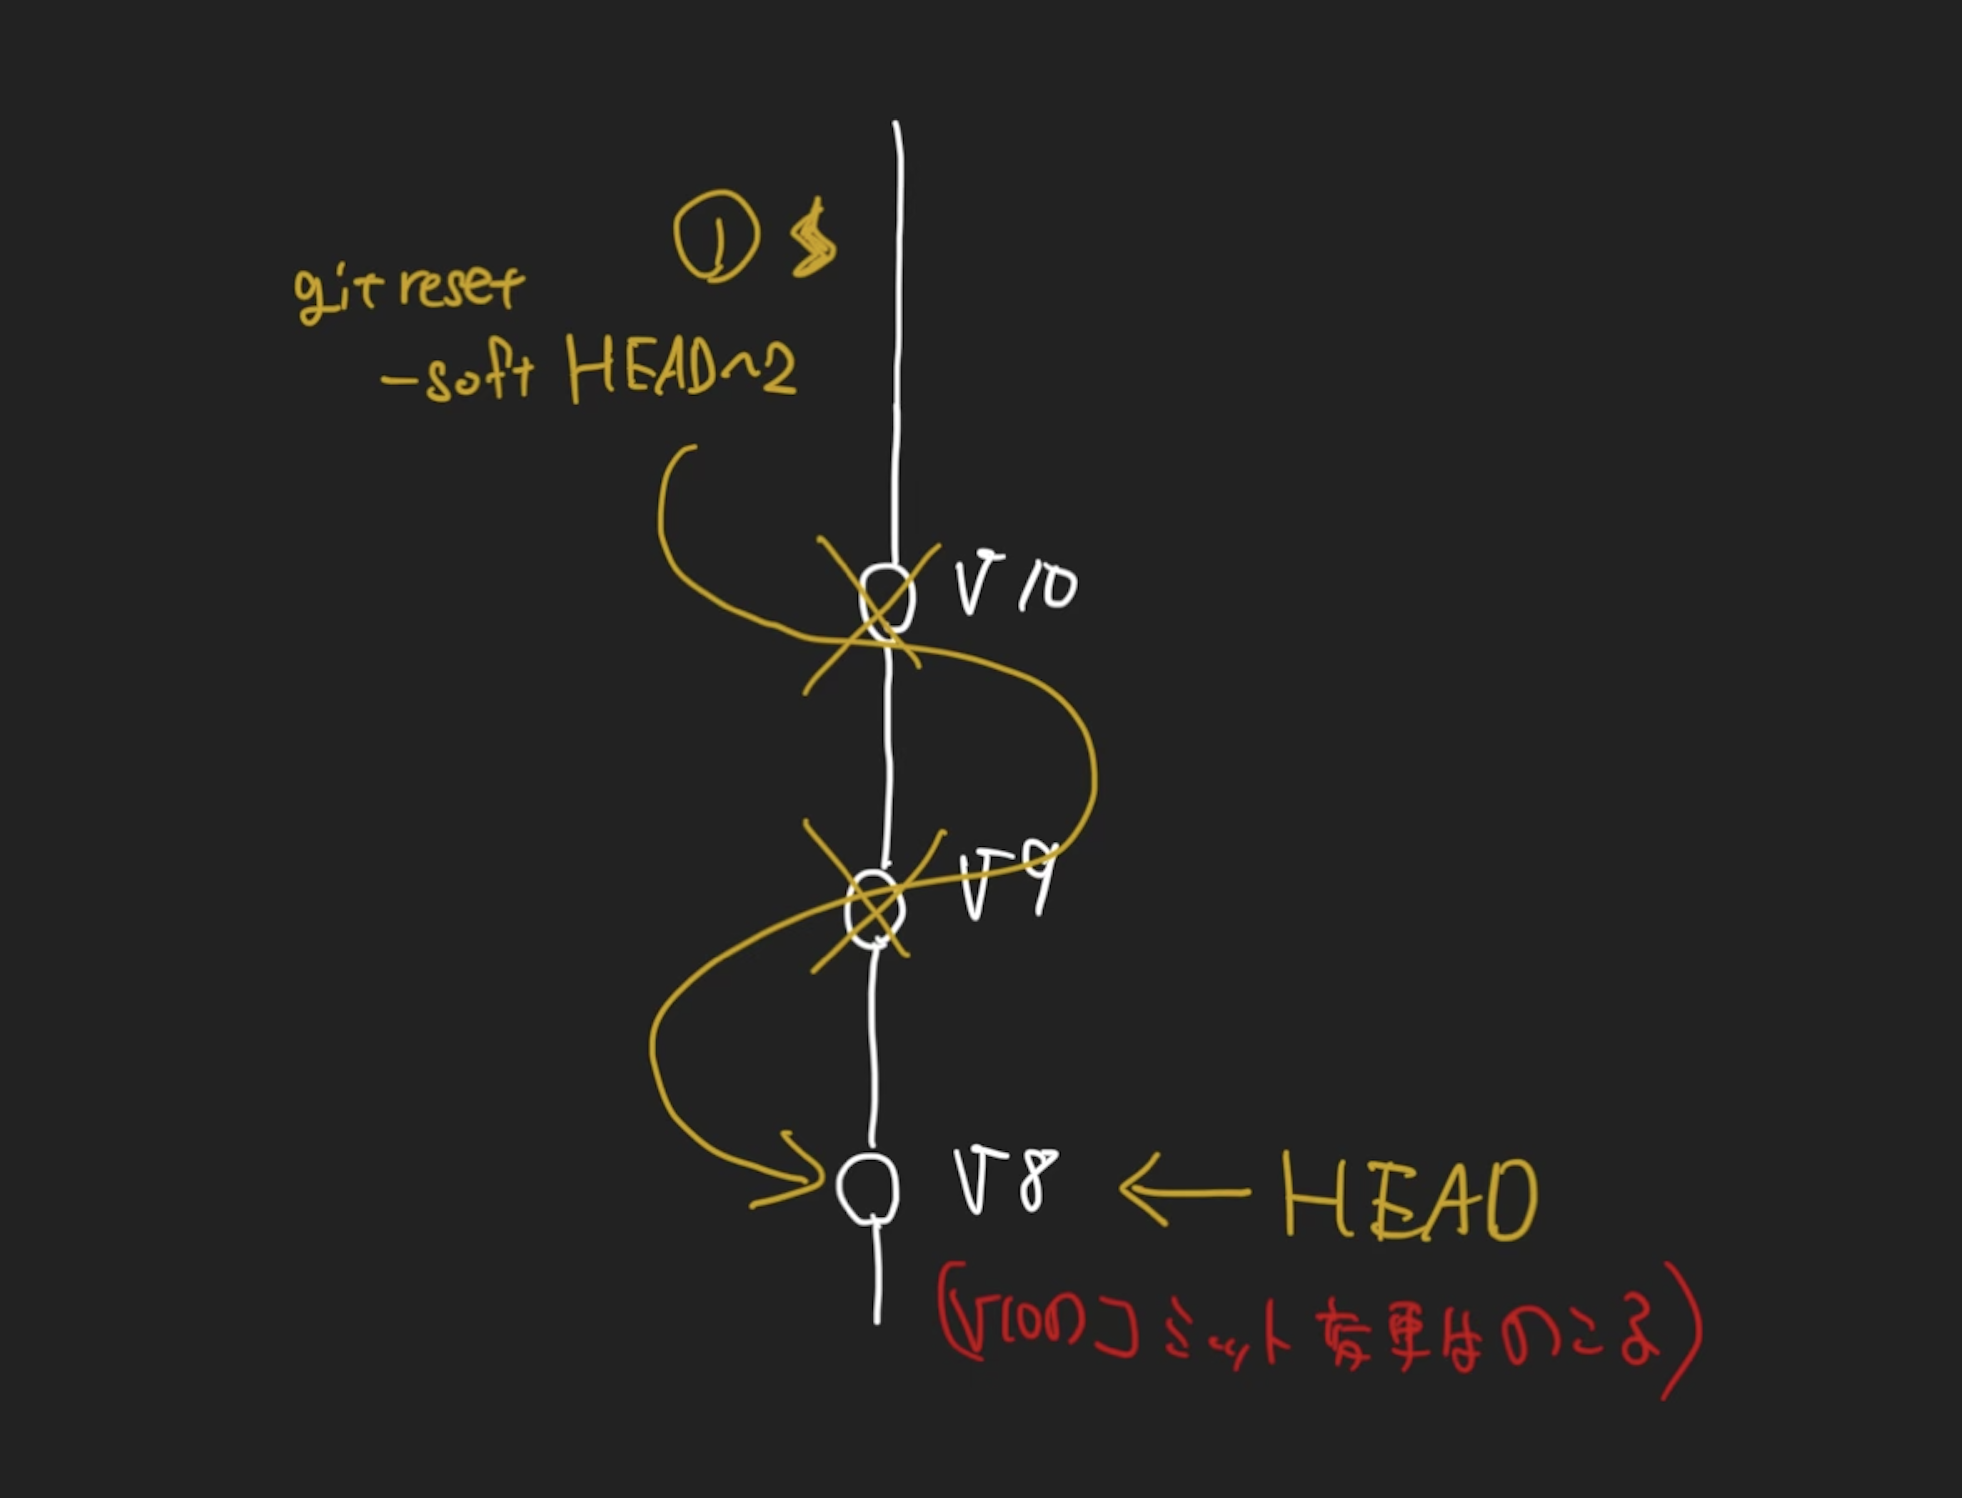 ① $
git reset
-soft HEAD~2
V10
V9
V8 ← HEAD
(V10のコミット変更はのこる)